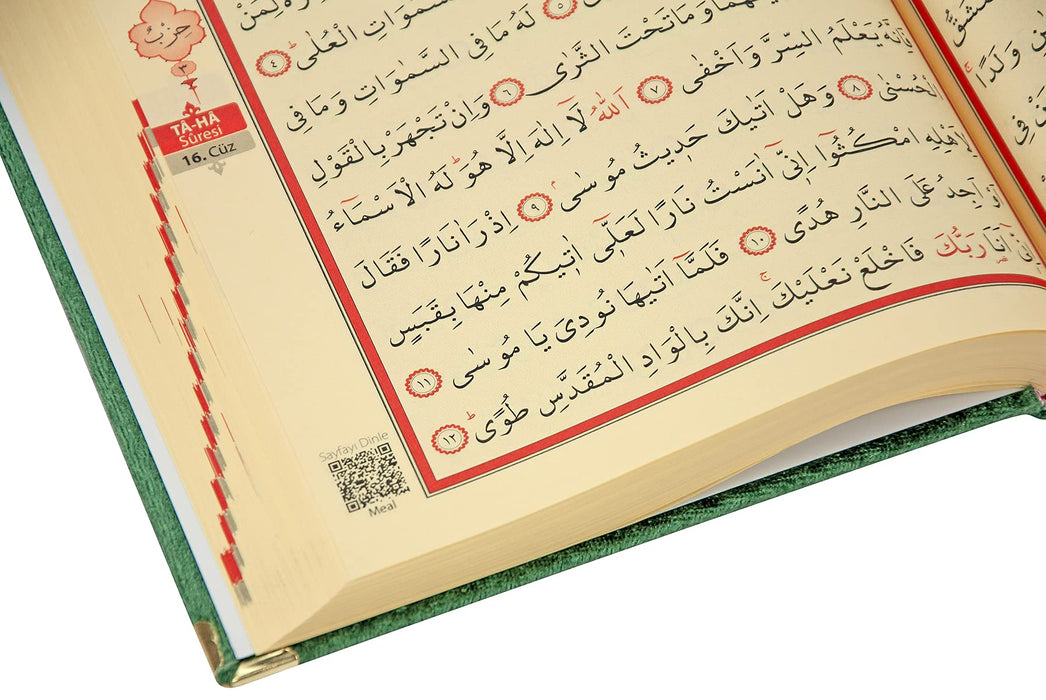 حِزْبٌ
٣
TÂ-HÂ
Sûresi
16. Cüz
السَّمٰوَاتِ الْعُلٰىۜ ﴿٤﴾
﴿٥﴾ لَهُ مَا فِي السَّمٰوَاتِ وَمَا فِي
وَمَا تَحْتَ الثَّرٰى ﴿٦﴾ وَاِنْ تَجْهَرْ بِالْقَوْلِ
فَاِنَّهُ يَعْلَمُ السِّرَّ وَاَخْفٰى ﴿٧﴾ اَللّٰهُ لَٓا اِلٰهَ اِلَّا هُوَۜ لَهُ الْاَسْمَٓاءُ
الْحُسْنٰى ﴿٨﴾ وَهَلْ اَتٰيكَ حَد۪يثُ مُوسٰىۢ ﴿٩﴾ اِذْ رَاٰ نَارًا فَقَالَ
لِاَهْلِهِ امْكُثُٓوا اِنّ۪ٓي اٰنَسْتُ نَارًا لَعَلّ۪ٓي اٰت۪يكُمْ مِنْهَا بِقَبَسٍ
اَوْ اَجِدُ عَلَى النَّارِ هُدًى ﴿١٠﴾ فَلَمَّٓا اَتٰيهَا نُودِيَ يَا مُوسٰى ﴿١١﴾
اِنّ۪ٓي اَنَا۬ رَبُّكَ فَاخْلَعْ نَعْلَيْكَۚ اِنَّكَ بِالْوَادِ الْمُقَدَّسِ طُوًىۜ ﴿١٢﴾
Sayfayı Dinle
Meal